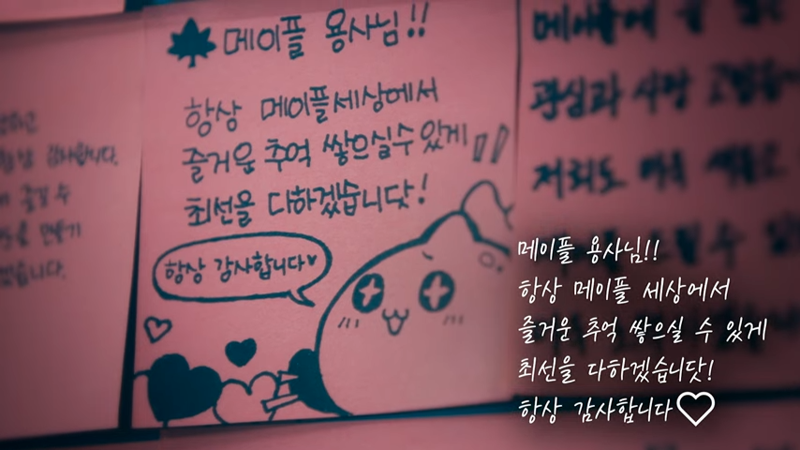 메이플 용사님!!
항상 메이플세상에서
즐거운 추억 쌓으실수있게!!
최선을 다하겠습니닷!
항상 감사합니다♥
감사합니다.
관심과 사랑
저희도
메이플 용사님!!
항상 메이플 세상에서
즐거운 추억 쌓으실 수 있게
최선을 다하겠습니닷!
항상 감사합니다♡